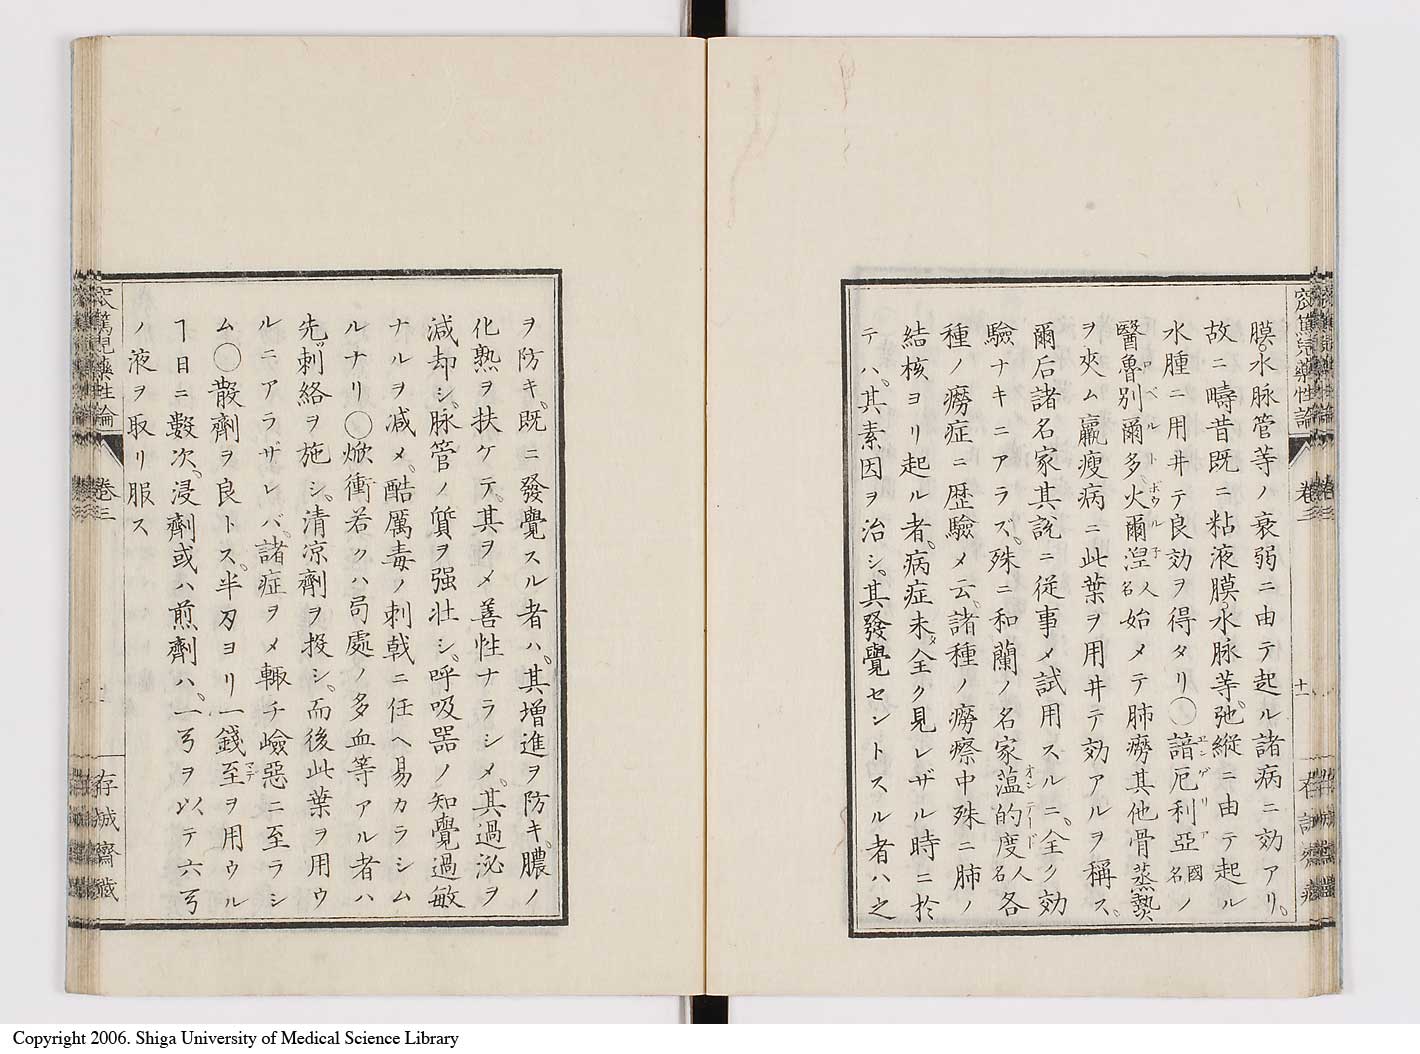 膜水脉管等ノ衰弱ニ由テ起ル諸病ニ効アリ。
故ニ疇昔既ニ粘液膜水脉等弛縦ニ由テ起ル
水腫ニ用井テ良効ヲ得タリ〇諳厄利亞國名ノ
エンゲリア
醫魯別爾多火爾涅人名始メテ肺癆其他骨蒸熱
ロベルトボウル子
ヲ夾ム羸瘦病ニ此葉ヲ用井テ効アルヲ稱ス。
爾后諸名家其説ニ從事メ試用スルニ。全ク効
驗ナキニアラズ。殊ニ和蘭ノ名家薀的度人名各
オンテード
種ノ癆症ニ歴驗メ云。諸種ノ癆瘵中殊ニ肺ノ
結核ヨリ起ル者。病症未メ全ク見レザル時ニ於
テハ。其素因ヲ治シ。其發覺セントスル者ハ之
ヲ防キ。既ニ發覺スル者ハ。其增進ヲ防キ。膿ノ
化熟ヲ扶ケテ。其ヲメ善性ナラシメ。其過泌ヲ
減却シ。脉管ノ質ヲ强壮シ。呼吸器ノ知覺過敏
ナルヲ减メ。酷厲毒ノ刺戟ニ任ヘ易カラシム
ルナリ〇焮衝若クハ局處ノ多血等アル者ハ
先ッ刺絡ヲ施シ。清凉劑ヲ投シ。而後此葉ヲ用ウ
ルニアラザレバ。諸症ヲメ輙チ嶮惡ニ至ラシ
ム〇散劑ヲ良トス。半刄ヨリ一錢至ヲ用ウル
マデ
ヿ日ニ數次。浸劑或ハ煎劑ハ。一弓ヲ以テ六弓
ノ液ヲ取リ服ス
窊篤兒藥性論 卷三 十一 存誠齋蔵
窊篤兒藥性論 卷三 存誠齋蔵
Copyright 2006. Shiga University of Medical Science Library